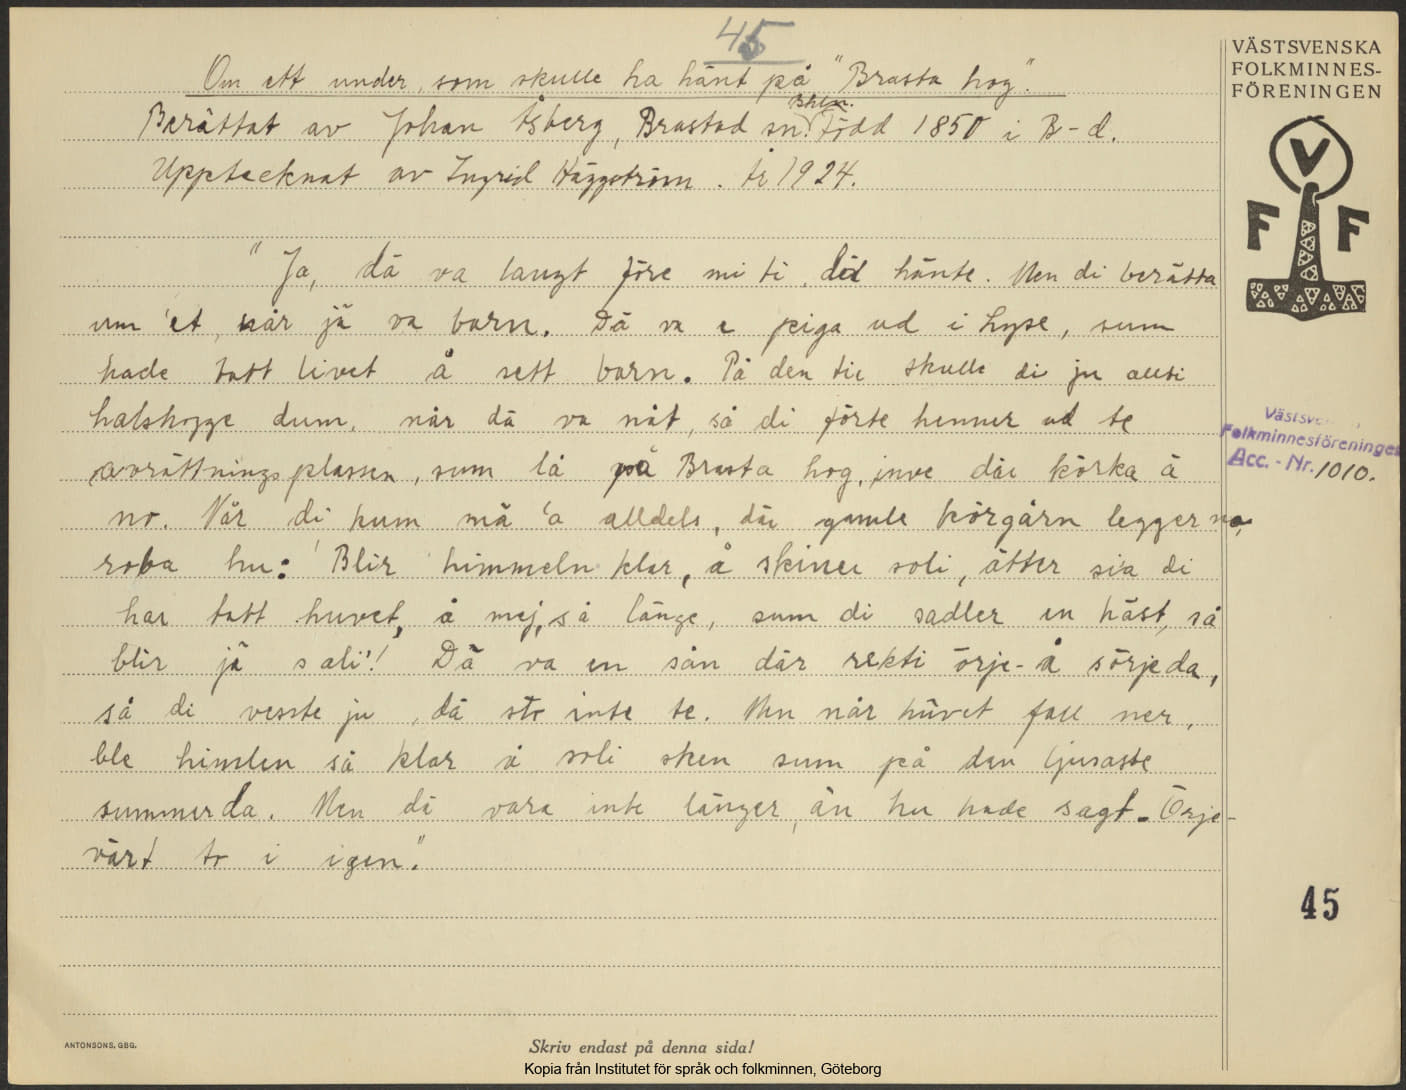 45
Om ett under, som skulle ha hänt på "Brasta hog".
Bhln.
Berättat av Johan Åsberg, Brastad sn. Född 1850 i B-d.
Upptecknat av Ingrid Häggström. År 1924.
"Ja, dä va langt före mi ti, däd hänte. Men di berätta
um 'et, når jä va barn. Dä va e piga ud i Lyse, sum
hade tatt livet å sett barn. På den tie skulle di ju allti
halshogge dum, når dä va nåt, så di förte henner ud te
avrättningsplassen, sum lå på Brasta hog, inve där körka ä
no. Når di kum mä 'a alldels, där gamle körgårn legger no,
roba hu: 'Blir himmeln klar, å skiner soli, ätter sia di
har tatt huvet å mej, så länge, sum di sadler en häst, så
blir jä sali'! Dä va en sån där rekti örje- å sörjeda,
så di vesste ju, dä sto inte te. Men når huvet fall ner,
ble himlen så klar å soli sken sum på den ljusaste
summerda. Men dä vara inte länger, än hu hade sagt. Örje-
värt to i igen."
VÄSTSVENSKA
FOLKMINNES-
FÖRENINGEN
V
F F
Västsv
Folkminnesföreningen
Acc.-Nr. 1010.
45
ANTONSONS, GBG.
Skriv endast på denna sida!
Kopia från Institutet för språk och folkminnen, Göteborg